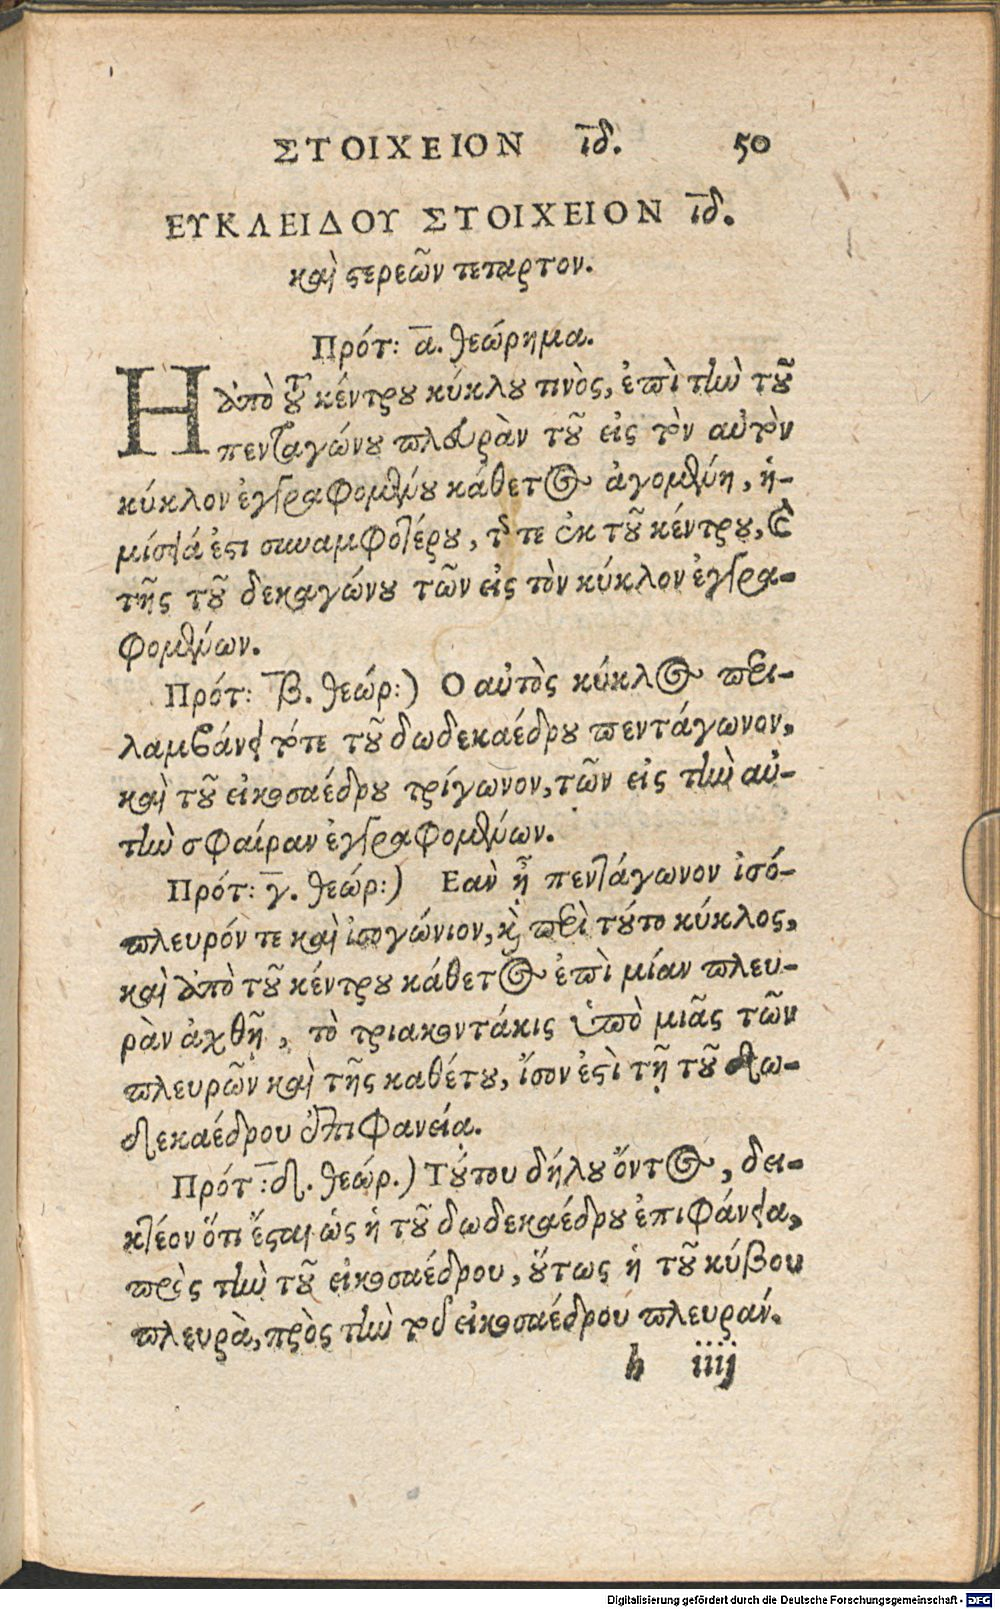 ΣΤΟΙΧΕΙΟΝ ιδ. 50
ΕΥΚΛΕΙΔΟΥ ΣΤΟΙΧΕΙΟΝ ιδ.
καὶ στερεῶν τέταρτον.
Πρότ: α. θεώρημα.
Η ἀπὸ τοῦ κέντρου κύκλου τινὸς, ἐπὶ τὴν τοῦ
πενταγώνου πλευρὰν τοῦ εἰς τὸν αὐτὸν
κύκλον ἐγγραφομένου κάθετος ἀγομένη, ἡ-
μίσειά ἐστι συναμφοτέρου, τῆς τε ἐκ τοῦ κέντρου, καὶ
τῆς τοῦ δεκαγώνου τῶν εἰς τὸν κύκλον ἐγγρα-
φομένων.
Πρότ: β. θεώρ:) Ο αὐτὸς κύκλος περι-
λαμβάνει τό τε τοῦ δωδεκαέδρου πεντάγωνον,
καὶ τοῦ εἰκοσαέδρου τρίγωνον, τῶν εἰς τὴν αὐ-
τὴν σφαίραν ἐγγραφομένων.
Πρότ: γ. θεώρ:) Εαν ᾖ πεντάγωνον ἰσό-
πλευρόν τε καὶ ἰσογώνιον, καὶ περὶ τοῦτο κύκλος,
καὶ ἀπὸ τοῦ κέντρου κάθετος ἐπὶ μίαν πλευ-
ρὰν ἀχθῇ, τὸ τριακοντάκις ὑπὸ μιᾶς τῶν
πλευρῶν καὶ τῆς καθέτου, ἴσον ἐστὶ τῇ τοῦ δω-
δεκαέδρου ἐπιφανείᾳ.
Πρότ: δ. θεώρ.) Τούτου δήλου ὄντος, δει-
κτέον ὅτι ἔσται ὡς ἡ τοῦ δωδεκαέδρου ἐπιφάνεια,
πρὸς τὴν τοῦ εἰκοσαέδρου, οὕτως ἡ τοῦ κύβου
πλευρὰ, πρὸς τὴν τοῦ εἰκοσαέδρου πλευράν.
h iiij
Digitalisierung gefördert durch die Deutsche Forschungsgemeinschaft - DFG